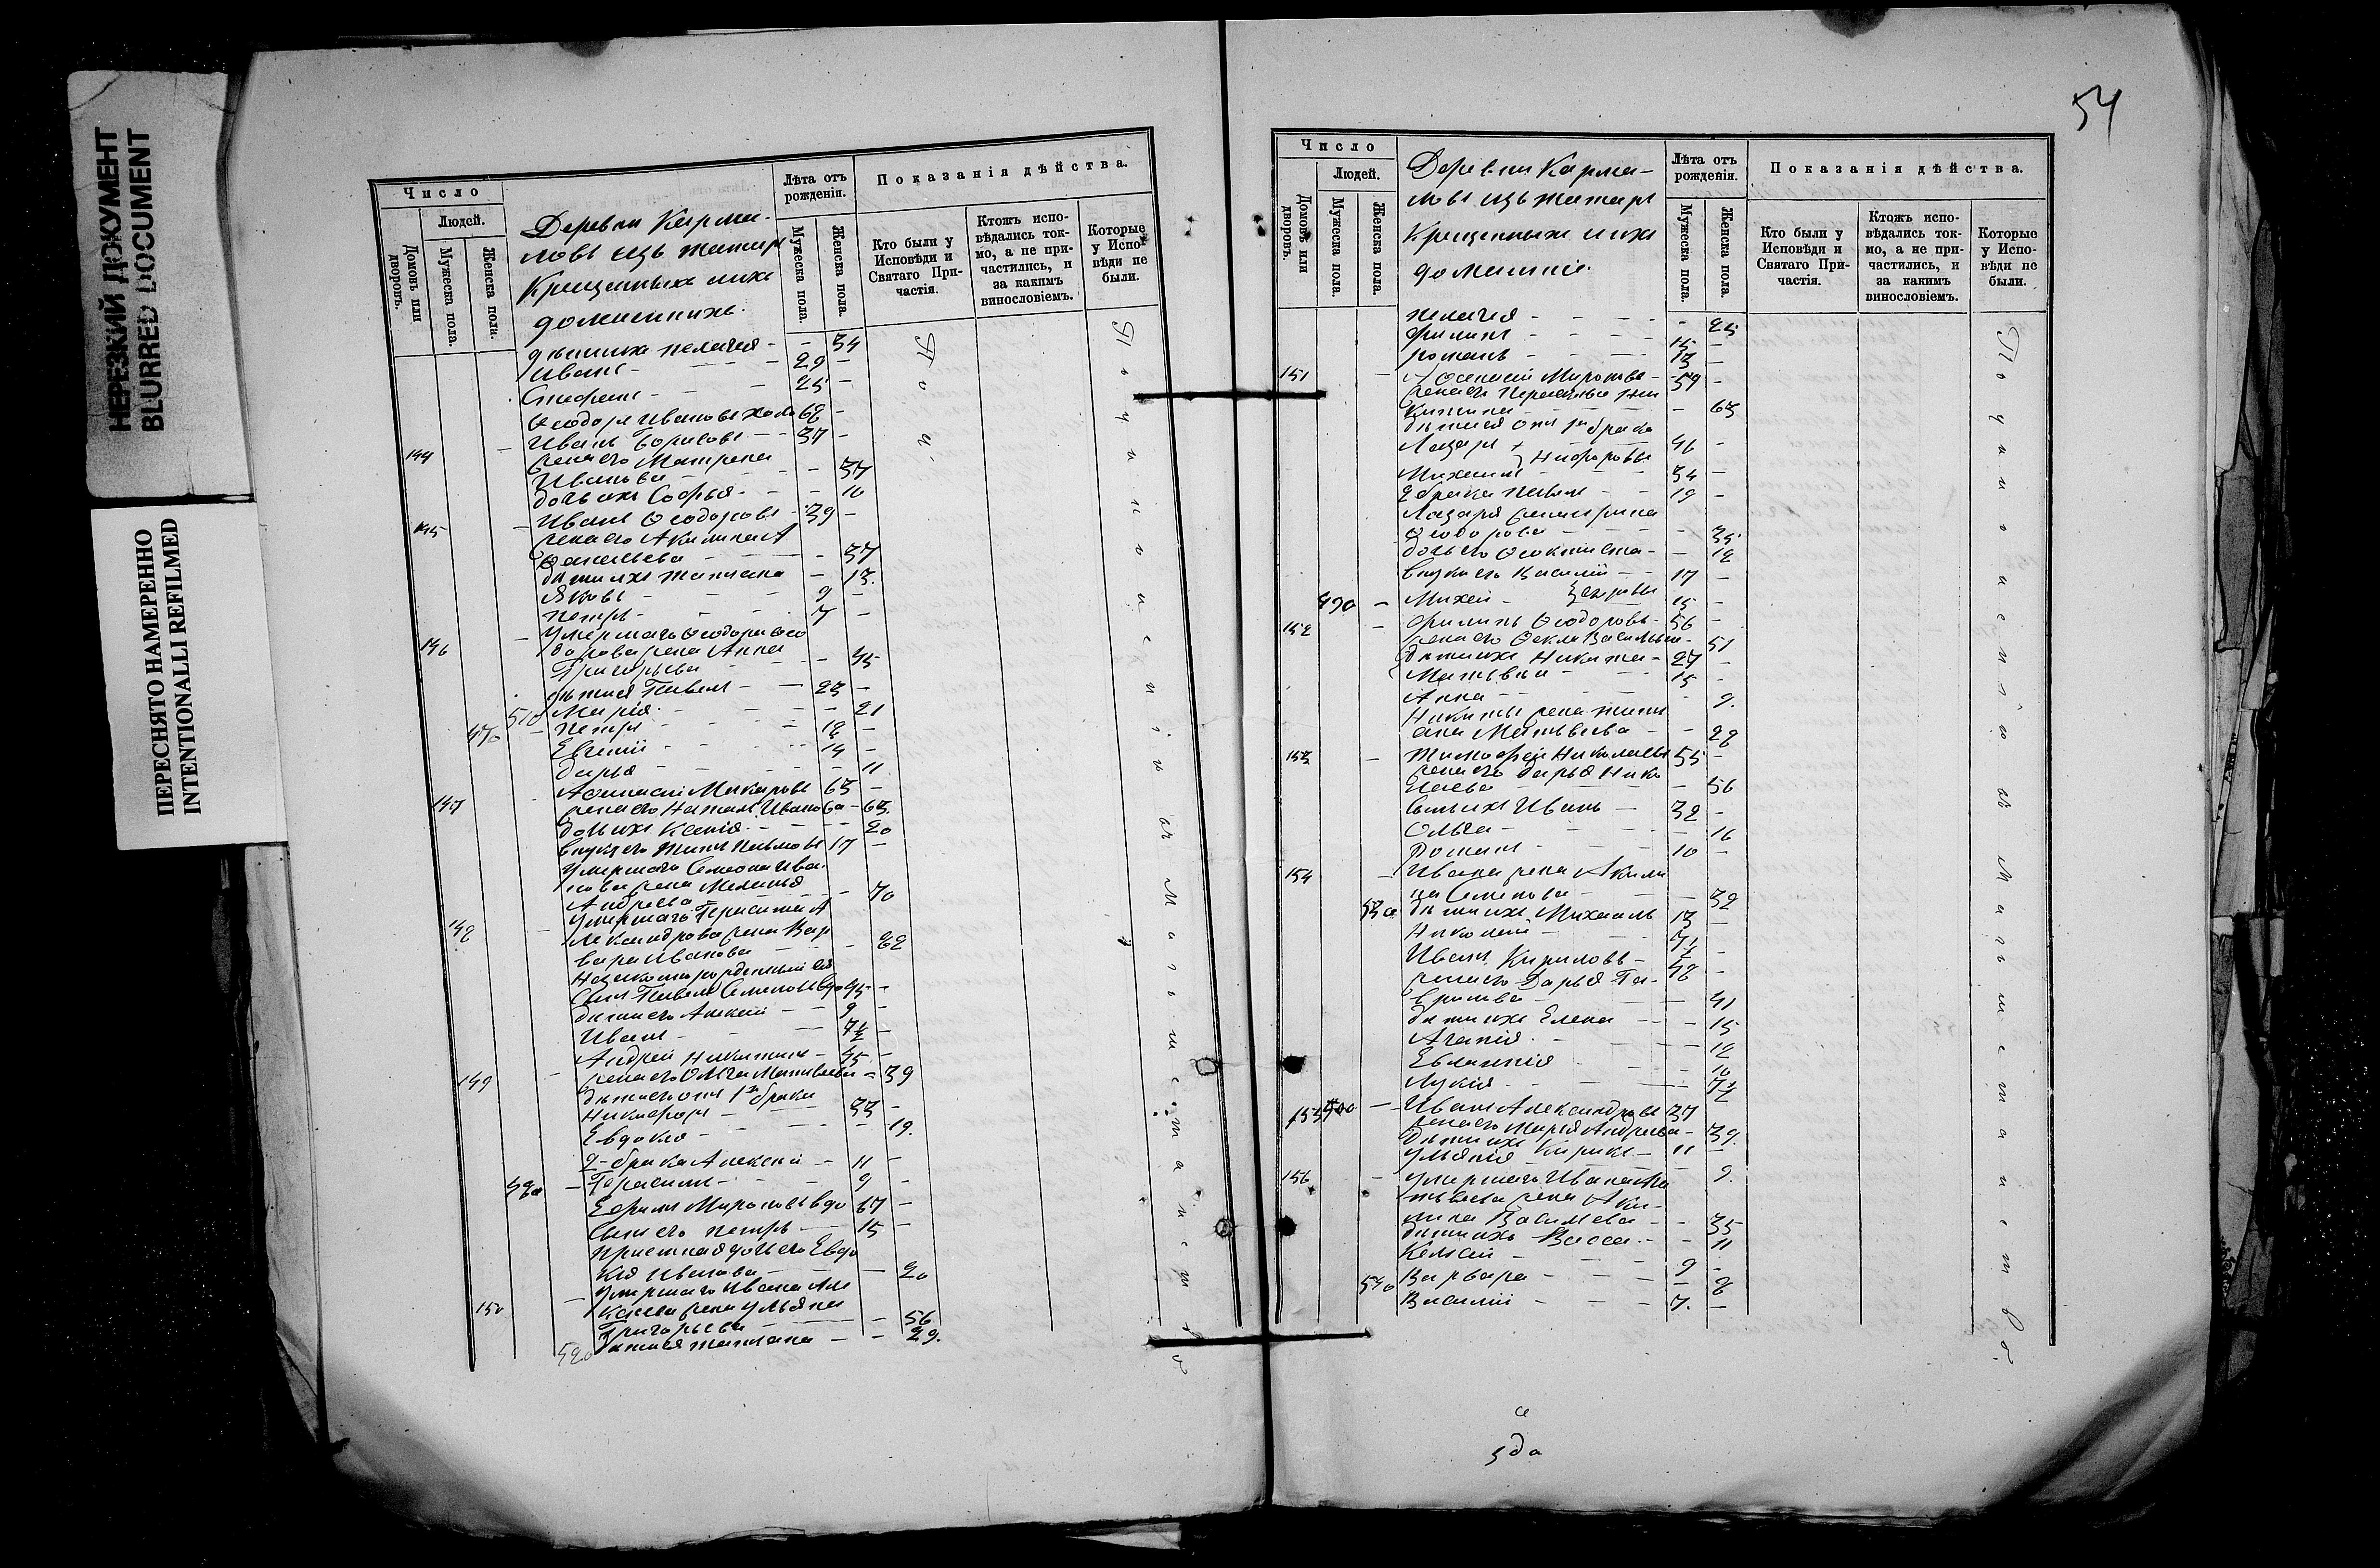 НЕРЕЗКИЙ ДОКУМЕНТ
BLURRED DOCUMENT
ПЕРЕСНЯТО НАМЕРЕННО
INTENTIONALLI REFILMED
Число
Людей.
Домовъ или дворовъ.
Мужеска пола.
Женска пола.
Деревни Карма-
новъ изъ татаръ
Крещенныхъ и ихъ
домашнихъ.
Лѣта отъ рожденія.
Мужеска пола.
Женска пола.
Показанія дѣйства.
Кто были у Исповѣди и Святаго Причастія.
Ктожъ исповѣдались токмо, а не причастились, и за какимъ винословіемъ.
Которые у Исповѣди не были.
дѣти ихъ Пелагея - - 34
Иванъ - 29 -
Стефанъ - 25 -
Ѳеодоръ Ивановъ 62 -
144 Иванъ Борисовъ - 37 -
жена его Матрена
Иванова - - 37
дочь ихъ Софья - - 10
145 Иванъ Ѳеодоровъ - 39 -
жена его Акилина
- 37
дѣти ихъ Татіана - 13
Яковъ - 9 -
Петръ - 7 -
146 Умершаго Ѳеодора Ѳео
дорова жена Анна
Григорьева - - 45
дѣти ея Павелъ - 23 -
510 Марія - - 21
470 Петръ - 18 -
Евгеній - 14 -
Дарья - - 11
147 Аѳанасій Макаровъ 65 -
жена его Наталья Иванова - 63
дочь ихъ Ксенія - - 20
внукъ его 17 -
Умершаго Симеона Ива
нова жена Меланья
Андреева - - 70
148 Умершаго Герасима А
лександрова жена Вар
вара Иванова - 62
сынъ Павелъ Семеновъ вдо 45 -
дѣти его Алексѣй - 9 -
Иванъ - 7½ -
149 Андрей Никитинъ - 45 -
жена его Ольга Матвѣева - 39
дѣти его отъ 1го брака
Никифоръ - 23 -
Евдокія - - 19
2 брака Алексѣй - 11 -
480 Герасимъ - 9 -
Ефимъ Мироновъ вдо 67 -
Сынъ его Петръ - 15 -
Приемная дочь его Евдо
кія Иванова - - 20
150 Умершаго Ивана Але
ксѣева жена Ульяна
Григорьева - - 56
520 дѣти ея Татіана - - 29
По упущенію и Магометанству
54
Число
Людей.
Домовъ или дворовъ.
Мужеска пола.
Женска пола.
Деревни Карма-
новъ изъ татаръ
Крещенныхъ и ихъ
домашніе.
Лѣта отъ рожденія.
Мужеска пола.
Женска пола.
Показанія дѣйства.
Кто были у Исповѣди и Святаго Причастія.
Ктожъ исповѣдались токмо, а не причастились, и за какимъ винословіемъ.
Которые у Исповѣди не были.
Пелагея - - 25
Филиппъ - 15 -
Романъ - 13 -
151 Мироновъ - 59 -
жена его
Никитина - - 63
дѣти ея отъ 1го брака
Лазарь 46 -
Никифоровы
Михаилъ - 34 -
2 брака Павелъ - 19 -
Лазаря жена Ирина
Ѳеодорова - - 35
дочь его Ѳеоктиста - - 12
внуки его Василій - 17 -
490 Михей - 15 -
152 Филиппъ Ѳеодоровъ - 56 -
жена его Ѳекла Васильева - 51
дѣти ихъ Никита - 27 -
Матвѣй - 15 -
Анна - - 9
Никиты жена Тати
ана Матвѣева - - 28
153 Тимофей Николаевъ 55 -
жена его Дарья Нико
лаева - - 56
сынъ ихъ Иванъ - 32 -
Ольга - - 16
Романъ - 10 -
154 Ивана жена Акили
на Семенова - - 32
530 дѣти ихъ Михаилъ 13 -
Николай - 7½ -
Иванъ Кириловъ - 48 -
жена его Дарья Га-
врилова - - 41
дѣти ихъ Елена - - 15
Агапія - - 12
Евлампія - - 10
Лукія - - 7½
155 500 Иванъ Александровъ 37
жена его Марія Андреева - 39
дѣти ихъ Кирикъ - 11 -
Ульянія - 9
156 Умершаго Ивана Ма
твѣева жена Аки-
лина Васильева - - 35
дѣти ихъ Васса - - 11
- 9 -
540 Варвара - - 8
Василій - 7 -
По упущенію и Магометанству